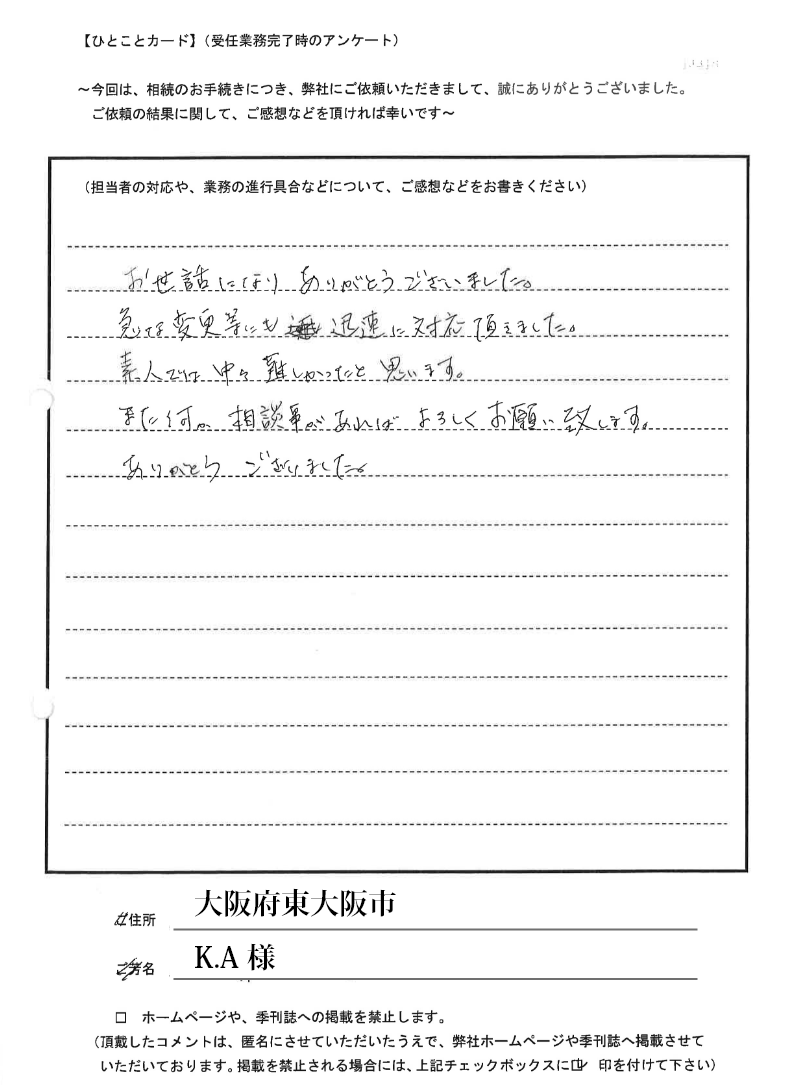 【ひとことカード】（受任業務完了時のアンケート）
～今回は、相続のお手続きにつき、弊社にご依頼いただきまして、誠にありがとうございました。
ご依頼の結果に関して、ご感想などを頂ければ幸いです～
（担当者の対応や、業務の進行具合などについて、ご感想などをお書きください）
お世話になり ありがとうございました。
急な変更等にも 迅速に対応頂きました。
素人では 中々 難しかったと 思います。
また何か 相談事があれば よろしくお願い致します。
ありがとう ございました。
住所 大阪府東大阪市
ご芳名 K.A 様
□ ホームページや、季刊誌への掲載を禁止します。
（頂戴したコメントは、匿名にさせていただいたうえで、弊社ホームページや季刊誌へ掲載させて
いただいております。掲載を禁止される場合には、上記チェックボックスに☑ 印を付けて下さい）